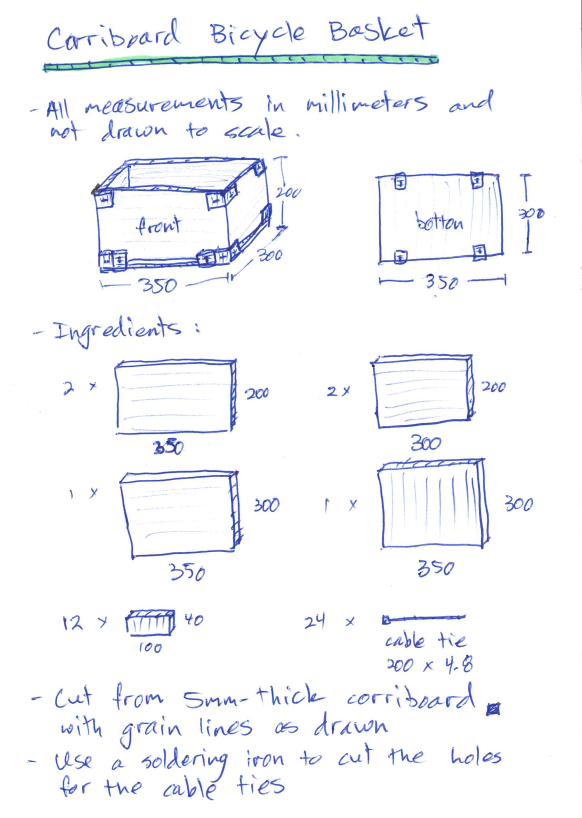 Corriboard Bicycle Basket
- All measurements in millimeters and
not drawn to scale.
front
200
300
350
botton
300
350
- Ingredients:
2 x
200
350
2 x
200
300
1 x
300
350
1 x
300
350
12 x
40
100
24 x
cable tie
200 x 4.8
- Cut from 5mm-thick corriboard
with grain lines as drawn
- Use a soldering iron to cut the holes
for the cable ties